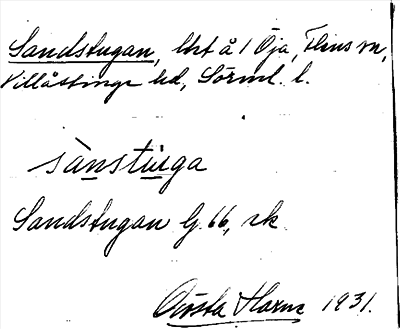 Sandstugan, lht å 1 Öja, Flens sn,
Villåttinge hd, Sörml. l.
sànstùga
Sandstugan G. 66, rk
Gösta Harne 1931.